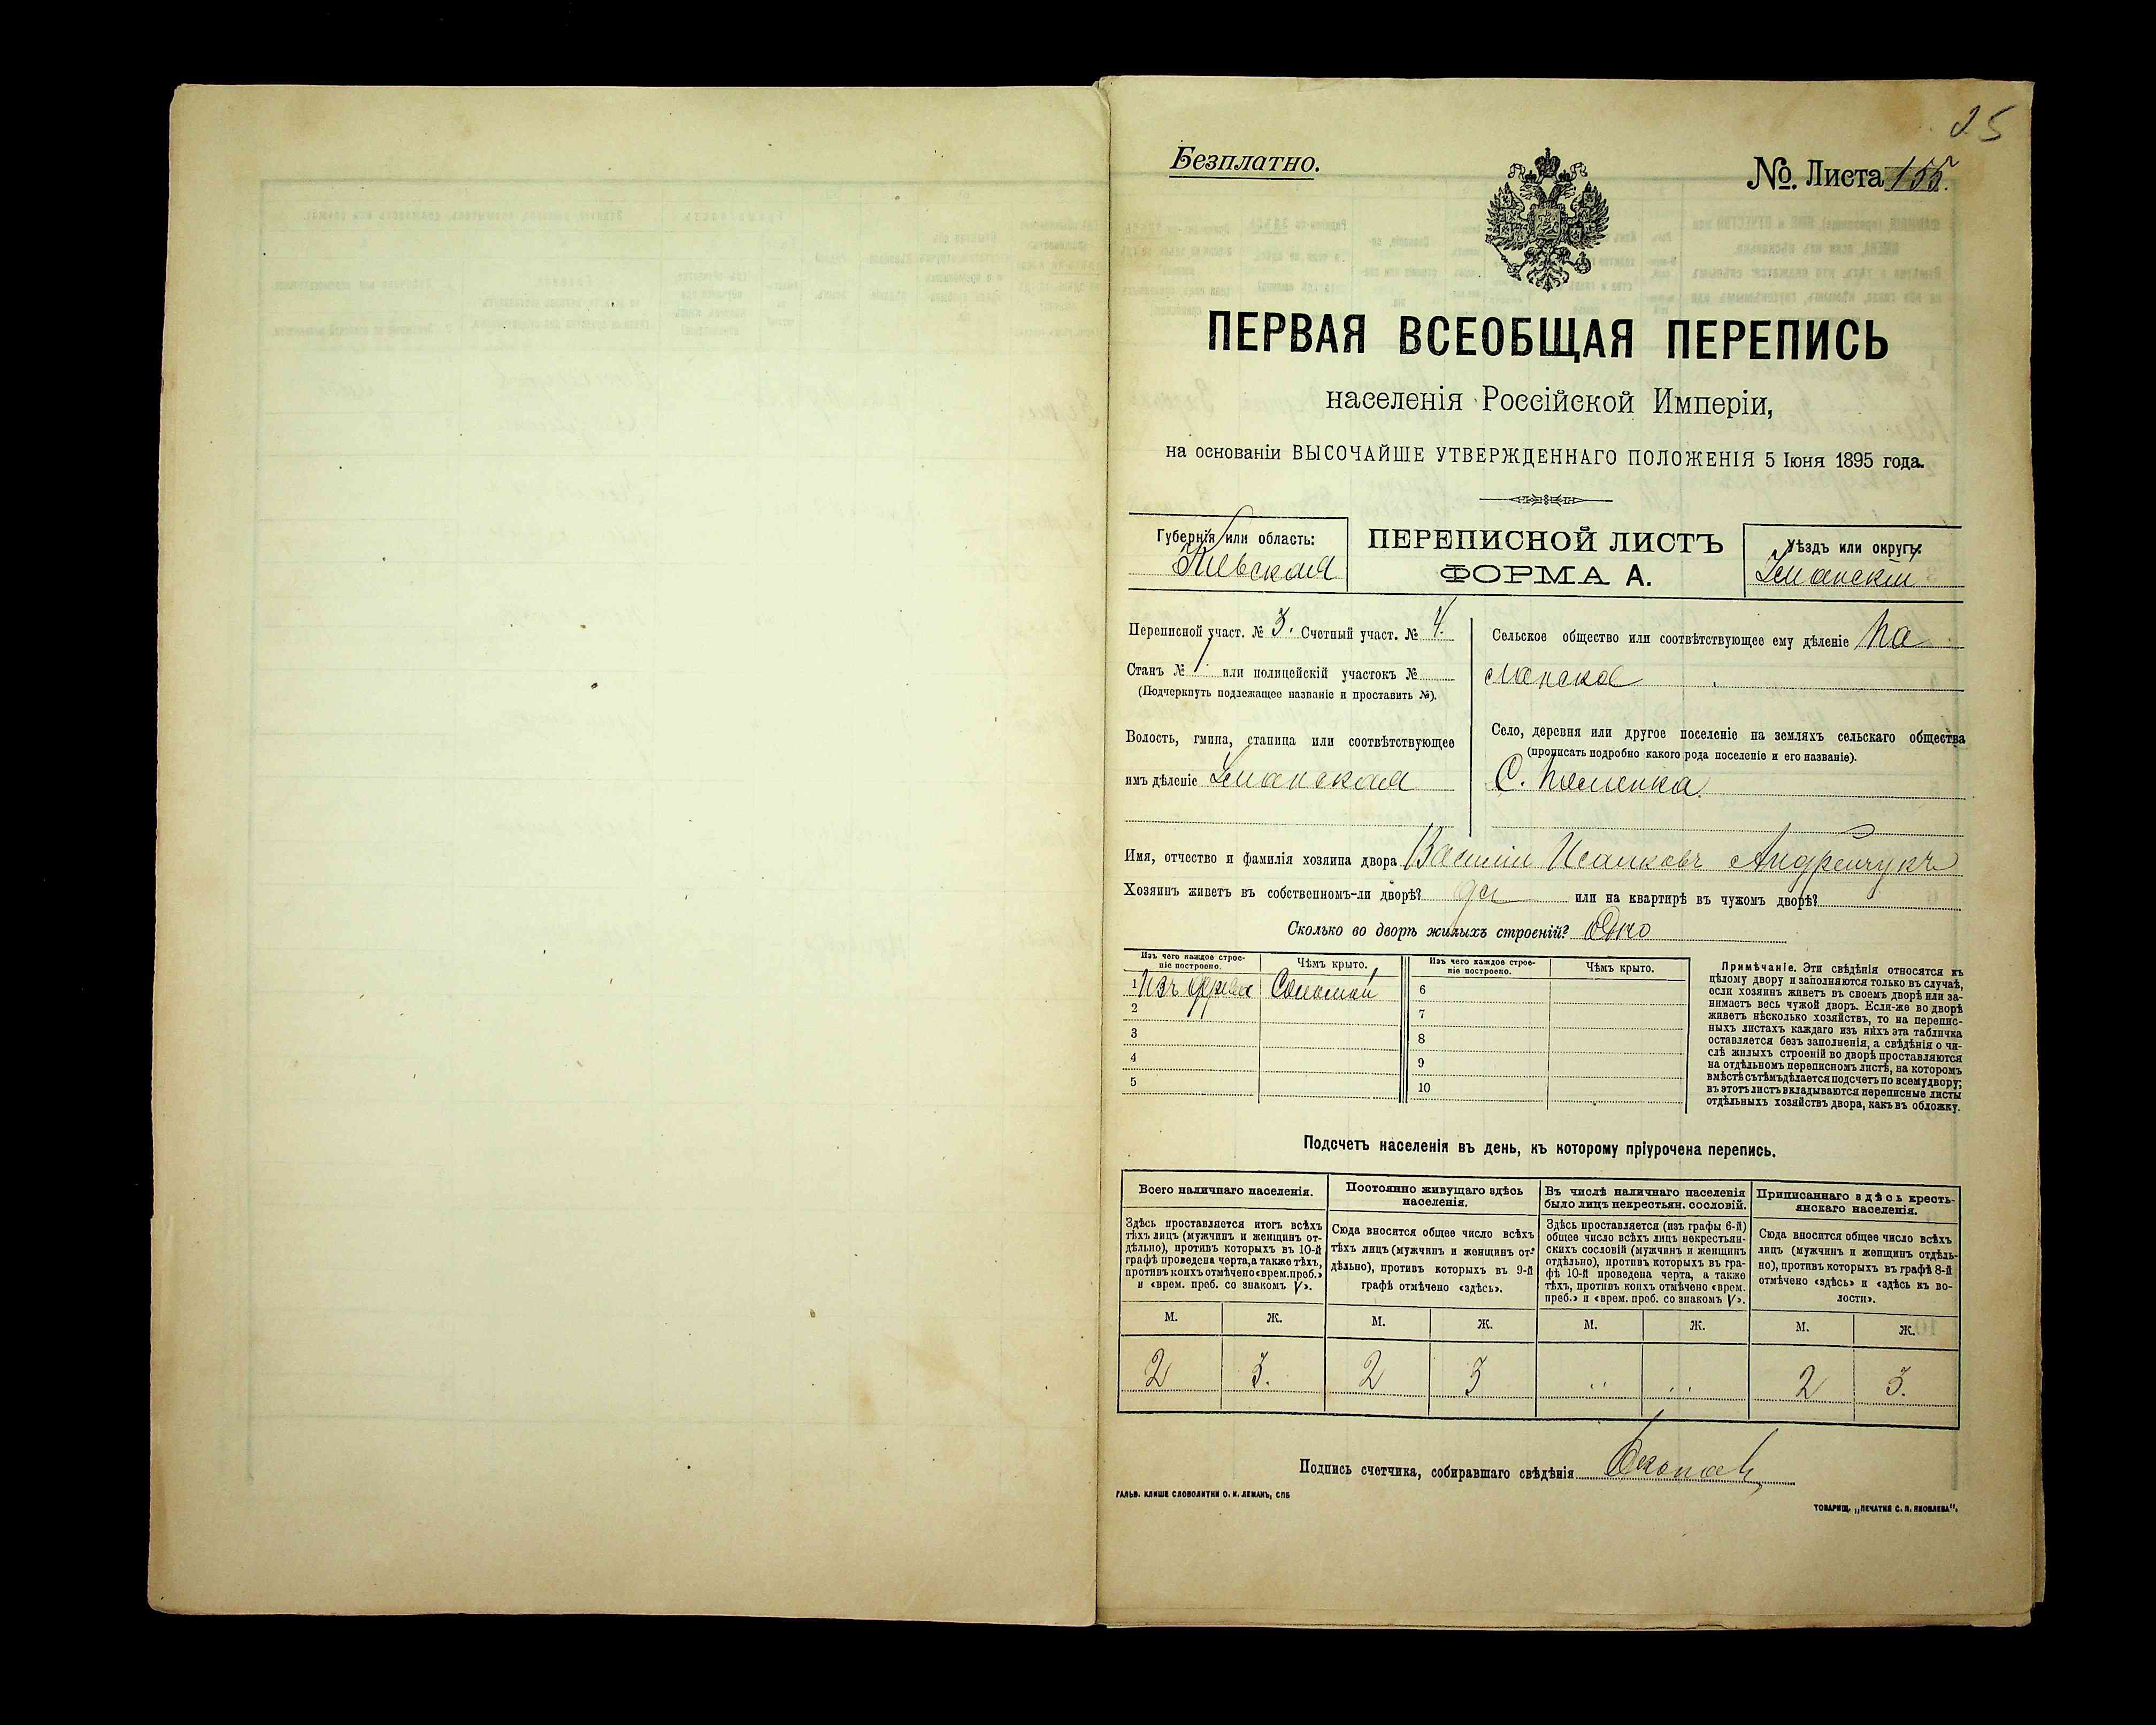 25
Безплатно.
№. Листа 155.
ПЕРВАЯ ВСЕОБЩАЯ ПЕРЕПИСЬ
населенія Россійской Имперіи,
на основаніи ВЫСОЧАЙШЕ УТВЕРЖДЕННАГО ПОЛОЖЕНІЯ 5 Іюня 1895 года.
Губернія или область:
Кіевская
ПЕРЕПИСНОЙ ЛИСТЪ
ФОРМА А.
Уѣздъ или округъ:
Уманскій
Переписной участ. № 3. Счетный участ. № 4.
Станъ № 1. или полицейскій участокъ №
(Подчеркнуть подлежащее названіе и проставить №).
Волость, гмина, станица или соотвѣтствующее
имъ дѣленіе Уманская
Сельское общество или соотвѣтствующее ему дѣленіе
Село, деревня или другое поселеніе на земляхъ сельскаго общества
(прописать подробно какого рода поселеніе и его названіе).
С.
Имя, отчество и фамилія хозяина двора Василій Исаковъ Андрейчукъ
Хозяинъ живетъ въ собственномъ-ли дворѣ? да или на квартирѣ въ чужомъ дворѣ?
Сколько во дворѣ жилыхъ строеній? Одно
Изъ чего каждое строе-
ніе построено.
Чѣмъ крыто.
Изъ чего каждое строе-
ніе построено.
Чѣмъ крыто.
1 Изъ дерева Соломой
2
3
4
5
6
7
8
9
10
Примѣчаніе. Эти свѣдѣнія относятся къ
цѣлому двору и заполняются только въ случаѣ,
если хозяинъ живетъ въ своемъ дворѣ или за-
нимаетъ весь чужой дворъ. Если-же во дворѣ
живетъ нѣсколько хозяйствъ, то на перепис-
ныхъ листахъ каждаго изъ нихъ эта табличка
оставляется безъ заполненія, а свѣдѣнія о чи-
слѣ жилыхъ строеній во дворѣ проставляются
на отдѣльномъ переписномъ листѣ, на которомъ
вмѣстѣ съ тѣмъ дѣлается подсчетъ по всему двору;
въ этотъ листъ вкладываются переписные листы
отдѣльныхъ хозяйствъ двора, какъ въ обложку.
Подсчетъ населенія въ день, къ которому пріурочена перепись.
Всего наличнаго населенія.
Здѣсь проставляется итогъ всѣхъ
тѣхъ лицъ (мужчинъ и женщинъ от-
дѣльно), противъ которыхъ въ 10-й
графѣ проведена черта, а также тѣхъ,
противъ коихъ отмѣчено «врем. преб.»
и «врем. преб. со знакомъ V».
Постоянно живущаго здѣсь
населенія.
Сюда вносится общее число всѣхъ
тѣхъ лицъ (мужчинъ и женщинъ от-
дѣльно), противъ которыхъ въ 9-й
графѣ отмѣчено «здѣсь».
Въ числѣ наличнаго населенія
было лицъ некрестьян. сословій.
Здѣсь проставляется (изъ графы 6-й)
общее число всѣхъ лицъ некрестьян-
скихъ сословій (мужчинъ и женщинъ
отдѣльно), противъ которыхъ въ гра-
фѣ 10-й проведена черта, а также
тѣхъ, противъ коихъ отмѣчено «врем.
преб.» и «врем. преб. со знакомъ V».
Приписаннаго здѣсь кресть-
янскаго населенія.
Сюда вносится общее число всѣхъ
лицъ (мужчинъ и женщинъ отдѣль-
но), противъ которыхъ въ графѣ 8-й
отмѣчено «здѣсь» и «здѣсь къ во-
лости».
М. Ж. М. Ж. М. Ж. М. Ж.
2 3. 2 3 .. .. 2 3.
Подпись счетчика, собиравшаго свѣдѣнія
ГАЛЬВ. КЛИШЕ СЛОВОЛИТНИ О. И. ЛЕМАНЪ, СПБ
ТОВАРИЩ. „ПЕЧАТНЯ С. П. ЯКОВЛЕВА".